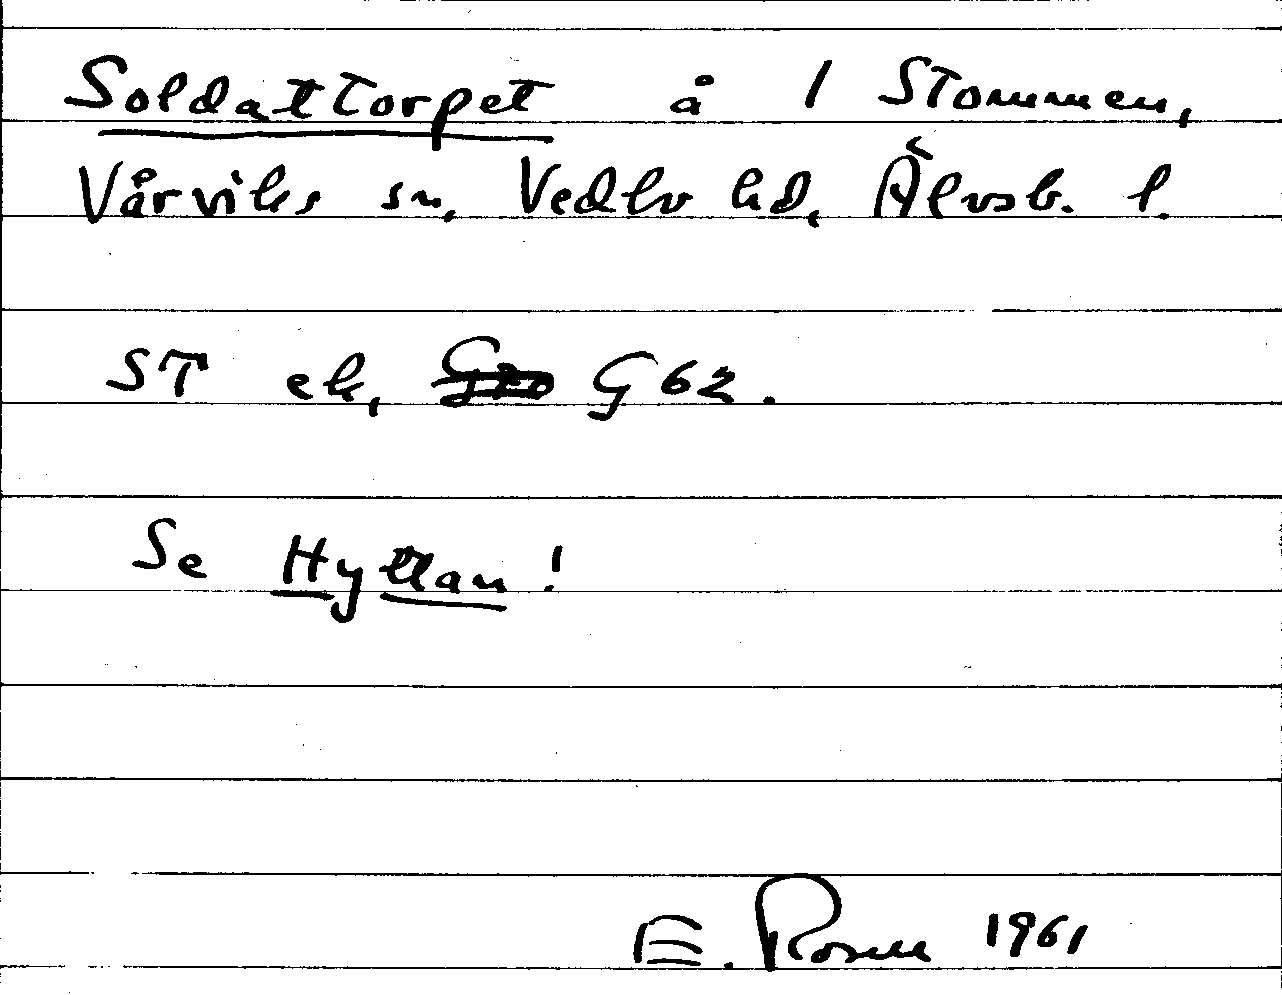 Soldattorpet å 1 Stommen,
Vårviks sn, Vedbo hd, Älvsb. l.
ST ek, G62.
Se Hyttan!
E. Rosen 1961